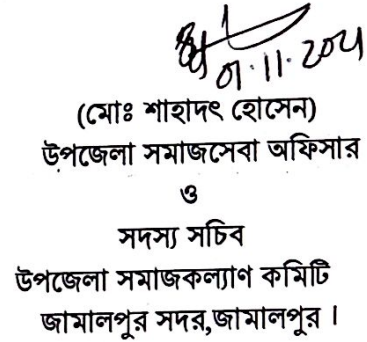 (মোঃ শাহাদৎ হোসেন)
উপজেলা সমাজসেবা অফিসার
ও
সদস্য সচিব
উপজেলা সমাজকল্যাণ কমিটি
জামালপুর সদর,জামালপুর ।